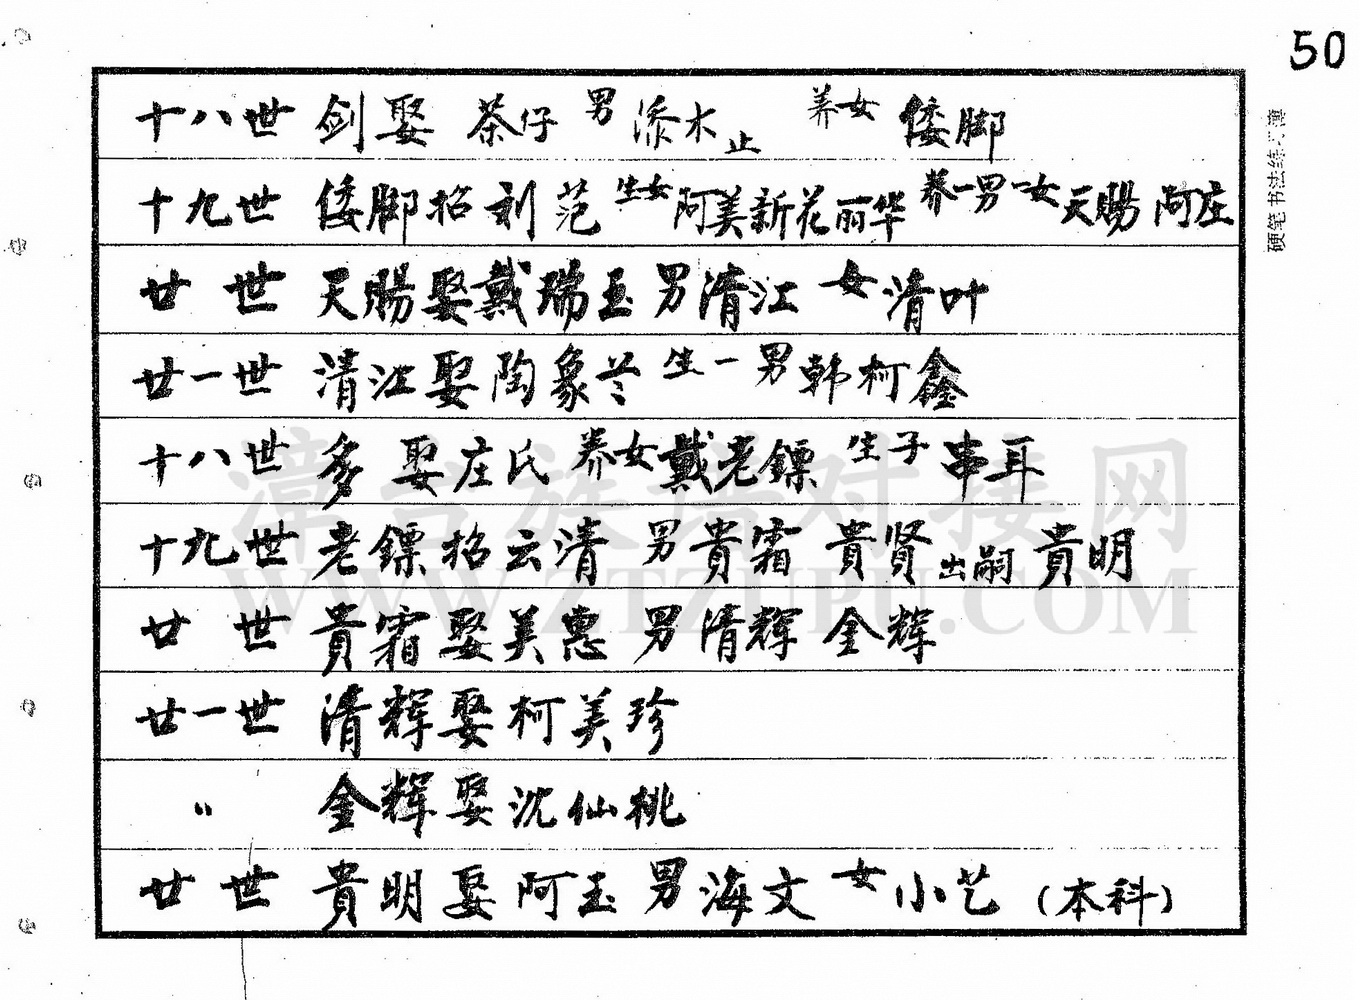 50
十八世 剑娶 茶仔 男 添木 止 养女 倭脚
十九世 倭脚招刘范 生女 阿美新花丽华 养一男一女 天赐 阿庄
廿世 天赐娶戴瑞玉 男清江 女清叶
廿一世 清江娶陶象兰 生一男韩柯鑫
十八世 多 娶庄氏 养女戴老鏢 生子 串耳
十九世 老鏢招云清 男貴霜 貴贤 出嗣 貴明
廿世 貴霜娶美惠 男清辉 金辉
廿一世 清辉娶柯美珍
〃 金辉娶沈仙桃
廿世 貴明娶阿玉 男海文 女小艺（本科）
硬笔书法练习簿
漳台族谱对接网
WWW.ZTZUPU.COM